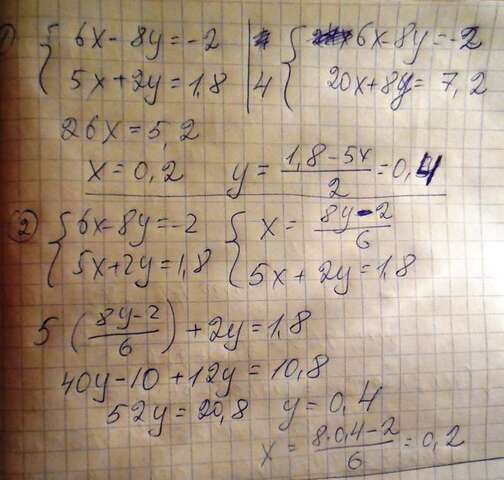 1) { 6x-8y=-2 | { 6x-8y=-2
5x+2y=1,8 | 4 20x+8y=7,2
26x=5,2
x=0,2 y=(1,8-5x)/2=0,4
② { 6x-8y=-2 { x=(8y-2)/6
5x+2y=1,8 5x+2y=1,8
5((8y-2)/6)+2y=1,8
40y-10+12y=10,8
52y=20,8 y=0,4
x=(8·0,4-2)/6=0,2